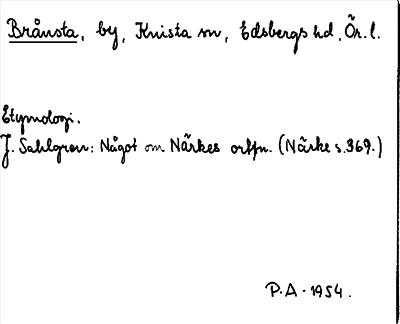 Brånsta, by, Knista sn, Edsbergs hd, Ör. l.
Etymologi.
J. Sahlgren: Något om Närkes ortpn. (Närke s. 369.)
P.A. 1954.